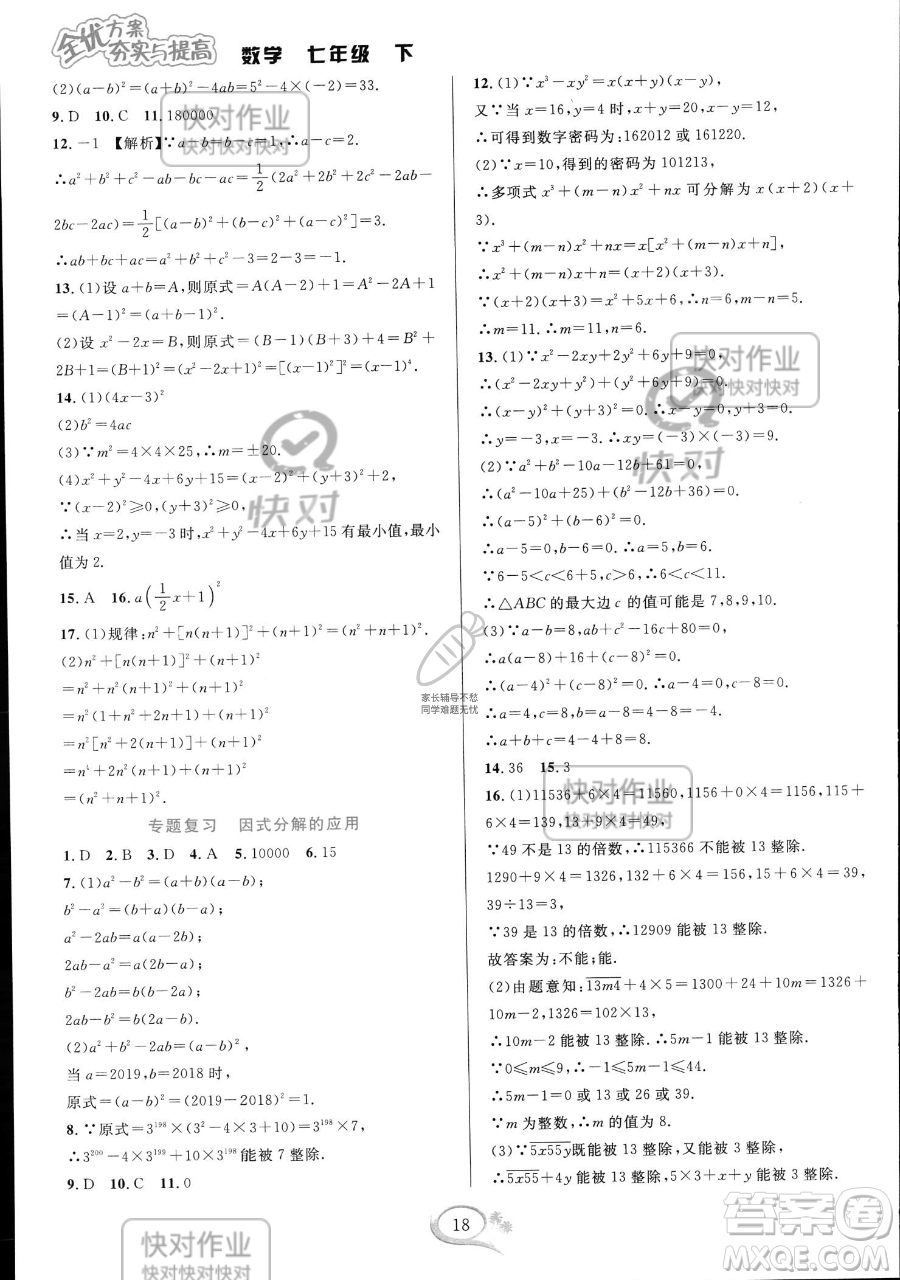 全优方案
夯实与提高
数学 七年级 下
(2)(a−b)²=(a+b)²−4ab=5²−4×(−2)=33.
9. D 10. C 11. 180000
12. −1 【解析】∵a−b=b−c=1,∴a−c=2.
∴a²+b²+c²−ab−bc−ac=1/2(2a²+2b²+2c²−2ab−
2bc−2ac)=1/2[(a−b)²+(b−c)²+(a−c)²]=3.
∴ab+bc+ac=a²+b²+c²−3=2−3=−1.
13. (1)设 a+b=A,则原式=A(A−2)+1=A²−2A+1=
(A−1)²=(a+b−1)².
(2)设 x²−2x=B,则原式=B(B+2)+1=B²+
2B+1=(B+1)²=(x²−2x+1)²=(x−1)⁴.
14. (1)(4x−3)²
(2)b²=4ac
(3)∵m²=4×4×25,∴m=±20.
(4)x²+y²−4x+6y+15=(x−2)²+(y+3)²+2.
∵(x−2)²≥0,(y+3)²≥0,
∴当 x=2,y=−3 时,x²+y²−4x+6y+15 有最小值,最小
值为 2.
15. A 16. a(1/2x+1)²
17. (1)规律:n²+[n(n+1)]²+(n+1)²=[n(n+1)+1]².
(2)n²+[n(n+1)]²+(n+1)²
=n²+n²(n+1)²+(n+1)²
=n²(1+n²+2n+1)+(n+1)²
=n²[n²+2(n+1)]+(n+1)²
=n⁴+2n²(n+1)+(n+1)²
=(n²+n+1)².
专题复习 因式分解的应用
1. D 2. B 3. D 4. A 5. 10000 6. 15
7. (1)a²−b²=(a+b)(a−b);
b²−a²=(b+a)(b−a);
a²−2ab=a(a−2b);
2ab−a²=a(2b−a);
b²−2ab=b(b−2a);
2ab−b²=b(2a−b).
(2)a²+b²−2ab=(a−b)²,
当 a=2019,b=2018 时,
原式=(a−b)²=(2019−2018)²=1.
8. ∵原式=3¹⁹⁸×(3²−4×3+10)=3¹⁹⁸×7,
∴3²⁰⁰−4×3¹⁹⁹+10×3¹⁹⁸能被 7 整除.
9. D 10. C 11. 0
12. (1)∵x³−xy²=x(x−y)(x+y),
又∵当 x=16,y=4 时,x+y=20,x−y=12,
∴可得到数字密码为:162012 或 161220.
(2)∵x=10,得到的密码为 101213,
∴多项式 x³+(m−n)x²+nx 可分解为 x(x+2)(x+
3).
∵x³+(m−n)x²+nx=x[x²+(m−n)x+n],
∴x²+(m−n)x+n=(x+2)(x+3).
∵(x+2)(x+3)=x²+5x+6,∴n=6,m−n=5.
∴m=11.∴m=11,n=6.
13. (1)∵x²−2xy+2y²+6y+9=0,
∴(x²−2xy+y²)+(y²+6y+9)=0.
∴(x−y)²+(y+3)²=0.∴x−y=0,y+3=0.
∴y=−3,x=−3.∴xy=(−3)×(−3)=9.
(2)∵a²−10a+b²−12b+61=0,
∴(a²−10a+25)+(b²−12b+36)=0.
∴(a−5)²+(b−6)²=0.
∴a−5=0,b−6=0.∴a=5,b=6.
∵6−5<c<6+5,c>6,∴6<c<11.
∴△ABC 的最大边 c 的值可能是 7,8,9,10.
(3)∵a−b=8,ab+c²−16c+80=0,
∴a(a−8)+16+(c−8)²=0.
∴(a−4)²+(c−8)²=0.∴a−4=0,c−8=0.
∴a=4,c=8,b=a−8=4−8=−4.
∴a+b+c=4−4+8=8.
14. 36 15. 3
16. (1)11536+6×4=11560,1156+0×4=1156,115+
6×4=139,13+9×4=49,
∵49 不是 13 的倍数,∴115366 不能被 13 整除.
1290+9×4=1326,132+6×4=156,15+6×4=39,
39÷13=3,
∵39 是 13 的倍数,∴12909 能被 13 整除.
故答案为:不能;能.
(2)由题意知:13m4+4×5=1300+24+10m=1326+
10m−2,1326=102×13,
∴10m−2 能被 13 整除.∴5m−1 能被 13 整除.
∵0≤m≤9,∴−1≤5m−1≤44.
∴5m−1=0 或 13 或 26 或 39.
∵m 为整数,∴m 的值为 8.
(3)∵5x55y既能被 13 整除,又能被 3 整除,
∴5x55+4y 能被 13 整除,5×3+x+y 能被 3 整除.
18
快对作业
快对快对快对
快对作业
快对快对快对
快对
快对
家长辅导不愁
同学难题无忧
快对作业
快对快对快对
快对作业
快对快对快对
快对作业
快对快对快对
快对作业
快对快对快对
答案圈
MXQE.COM